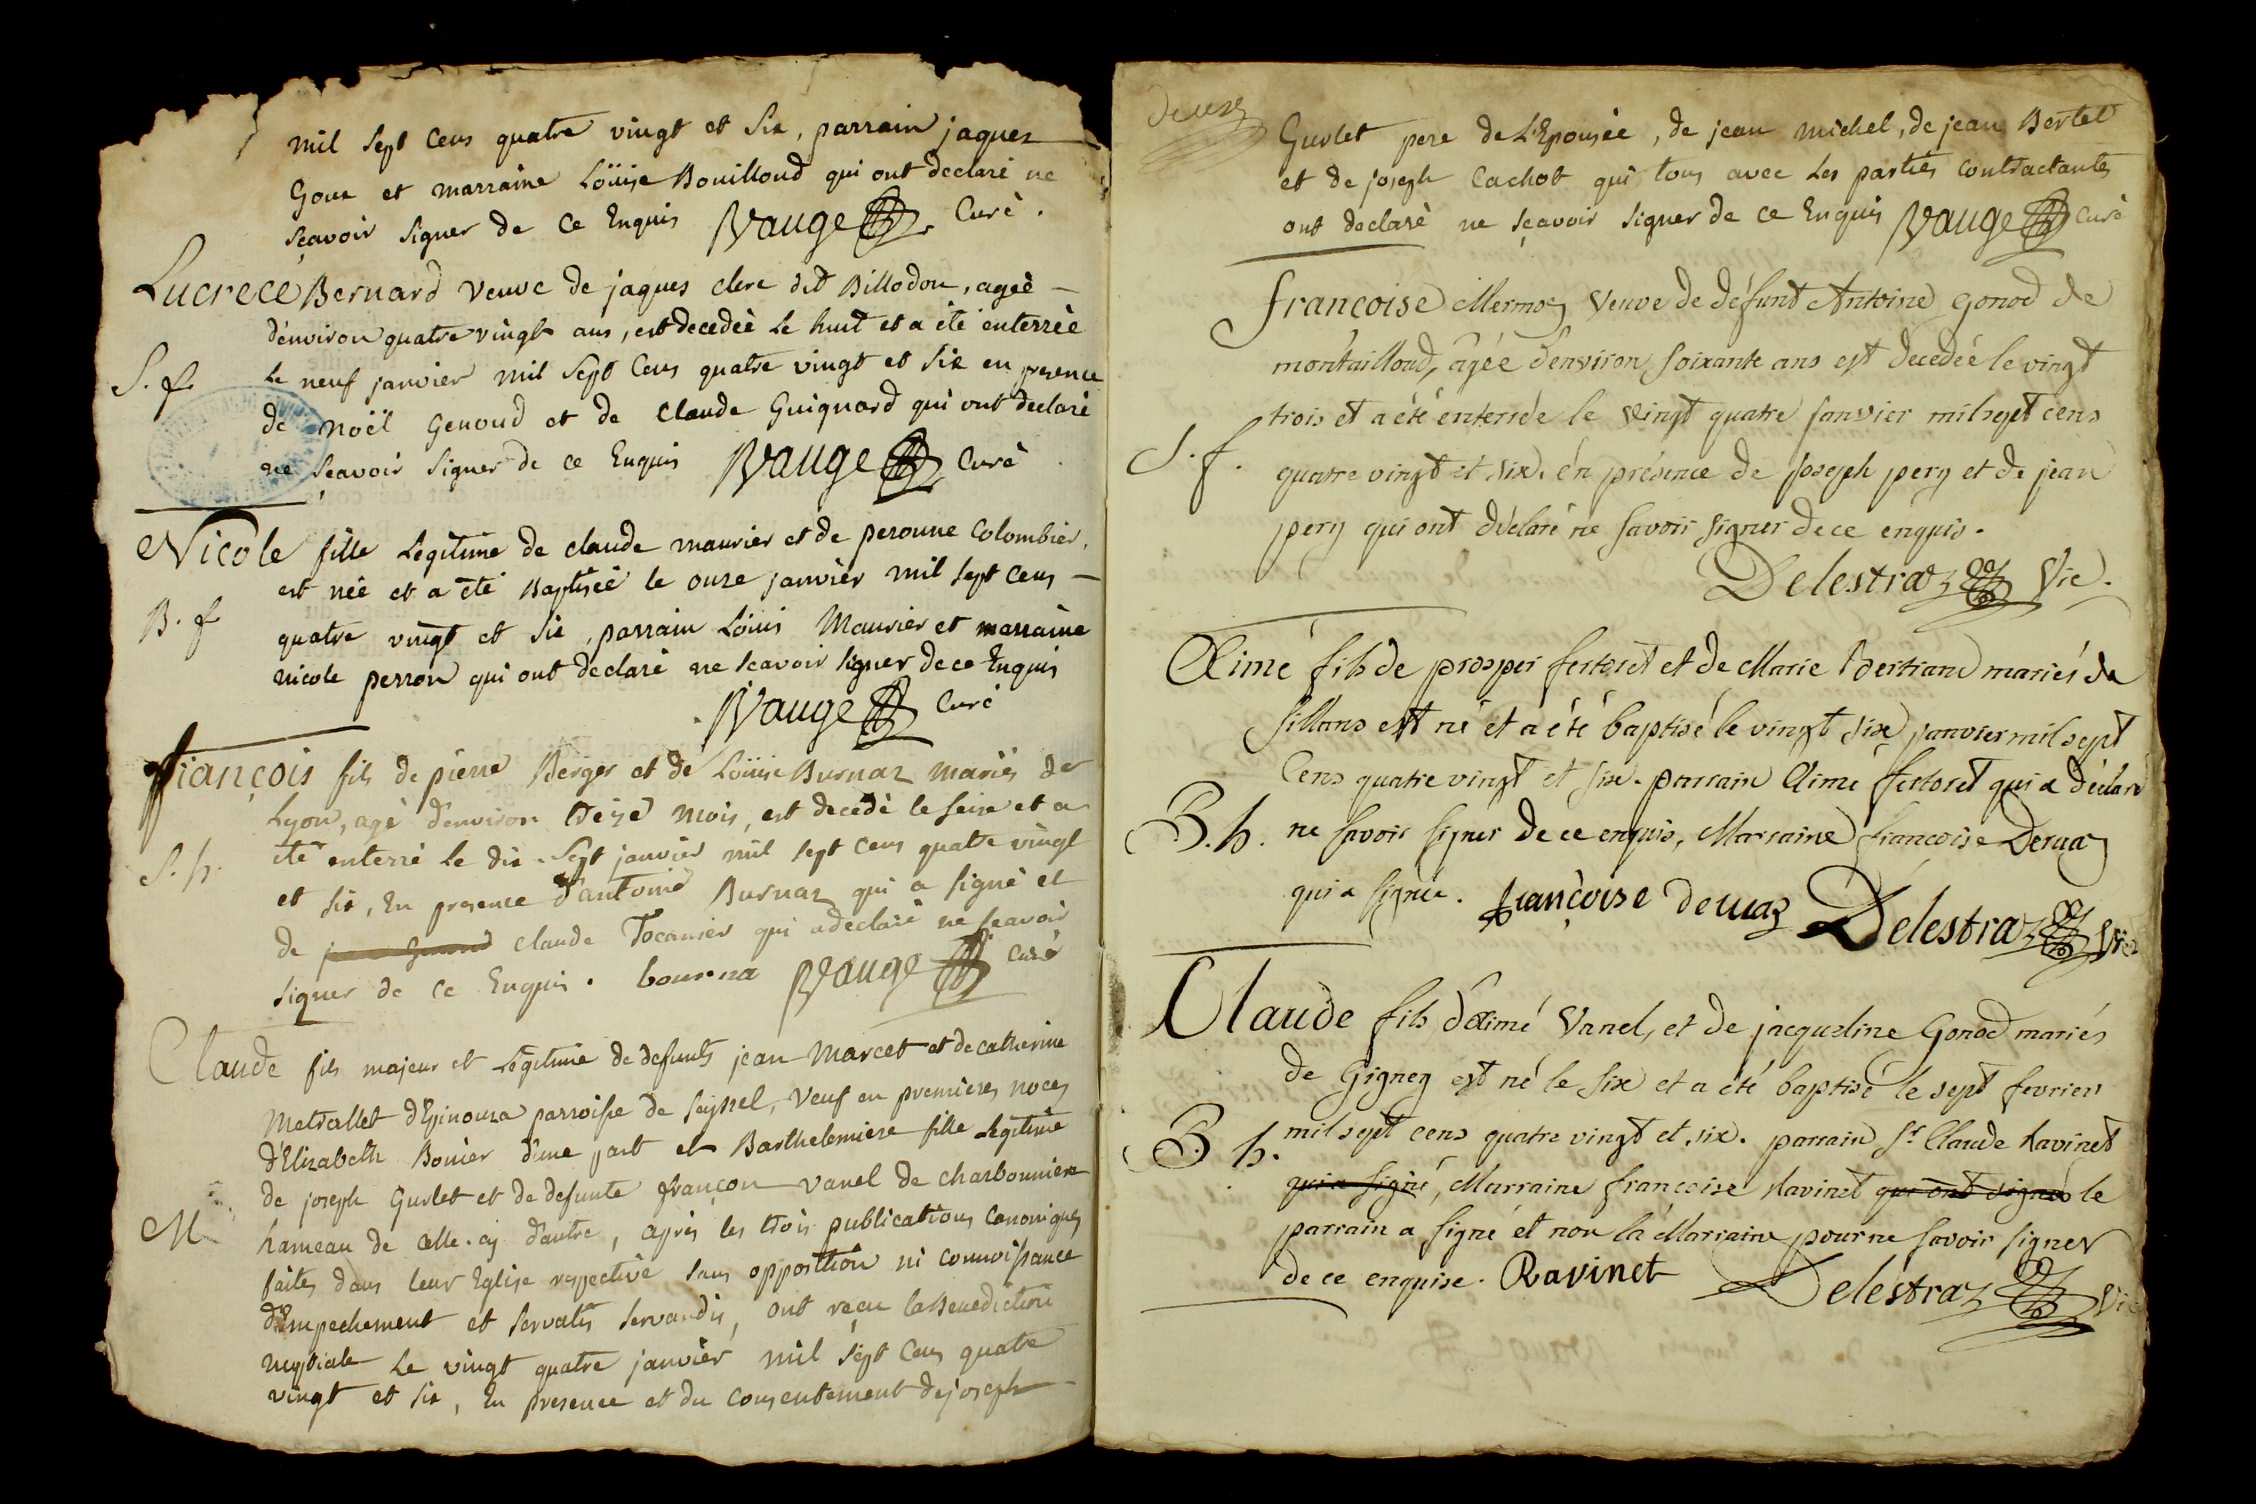 mil sept cens quatre vingt et six, parrain jaques
Goux et marraine Loüise Bouilloud qui ont declaré ne
sçavoir signer de ce Enquis Vauge Curé.
Lucrece Bernard veuve de jaques clerc dit Billodon, ageè
d'environ quatre vingt ans, est decedeè le huit et a été enterrèe
S. f. le neuf janvier mil sept Cens quatre vingt et six en presence
de noël Genoud et de Claude Guignard qui ont declaré
ne sçavoir signer de ce Enquis Vauge Curè
Nicole fille Legitime de claude maurier et de peronne Colombier,
est née et a été Baptiseè le onze janvier mil sept Cens
B. f quatre vingt et six, parrain Loüis Maurier et marraine
nicole perron qui ont declaré ne sçavoir signer de ce Enquis
Vauge Curé
François fils de pierre Berger et de Loüise Burnaz mariès de
Lyon, agè d'environ treize mois, est decedè le seize et a
S. h. été enterré le dix-sept janvier mil sept Cens quatre vingt
et six, En presence d'antoine Burnaz qui a signè et
de claude Tocanier qui a declaré ne sçavoir
signer de ce Enquis. bourna Vauge Curé
Claude fils majeur et Légitime de defunts jean Marcet et de catherine
Metrallet d'Eginouza parroisse de Seyssel, Veuf en premieres noces
d'Elizabeth Bonier d'une part et Barthelemiere fille Legitime
de joseph Gurlet et de defunte françon Vanel de charbonniere
M hameau de celle-cy d'autre, après les trois publications Canoniques
faites dans leur Eglise respective sans opposition ni connoissance
d'Empechement et servatis servandis, ont reçu la Benediction
nuptiale le vingt quatre janvier mil sept Cens quatre
vingt et six, En presence et du consentement de joseph
Gurlet pere de L'Epouseè, de jean michel, de jean Bertet
et de joseph Cachot qui tous avec les parties Contractantes
ont declaré ne sçavoir signer de ce Enquis Vauge Curé
françoise Mermoz Veuve de défunt Antoine gonod de
montailloud, âgée d'environ soixante ans est decedée le vingt
trois et a été enterrée le vingt quatre janvier mil sept cens
S. f. quatre vingt et six. en présence de joseph pery et de jean
pery qui ont déclaré ne savoir signer de ce enquis.
Delestraz Vic.
Aimé fils de prosper fertoret et de Marie Bertrand mariés de
sillans est né et a été baptisé le vingt six janvier mil sept
Cens quatre vingt et six. parrain Aimé fertoret qui a déclaré
B. h. ne savoir signer de ce enquis, Marraine francoise Deruaz
qui a signée. françoise deruaz Delestraz Vic
Claude fils d'aimé Vanel, et de jacqueline Gonod mariés
de Gignez est né le six et a été baptisé le sept fevrier
B. h. mil sept cens quatre vingt et six. parrain Sr Claude Ravinet
qui a signé, Marraine francoise Ravinet qui ont signés le
parrain a signé et non la Marraine pour ne savoir signer
de ce enquise. Ravinet Delestraz Vic